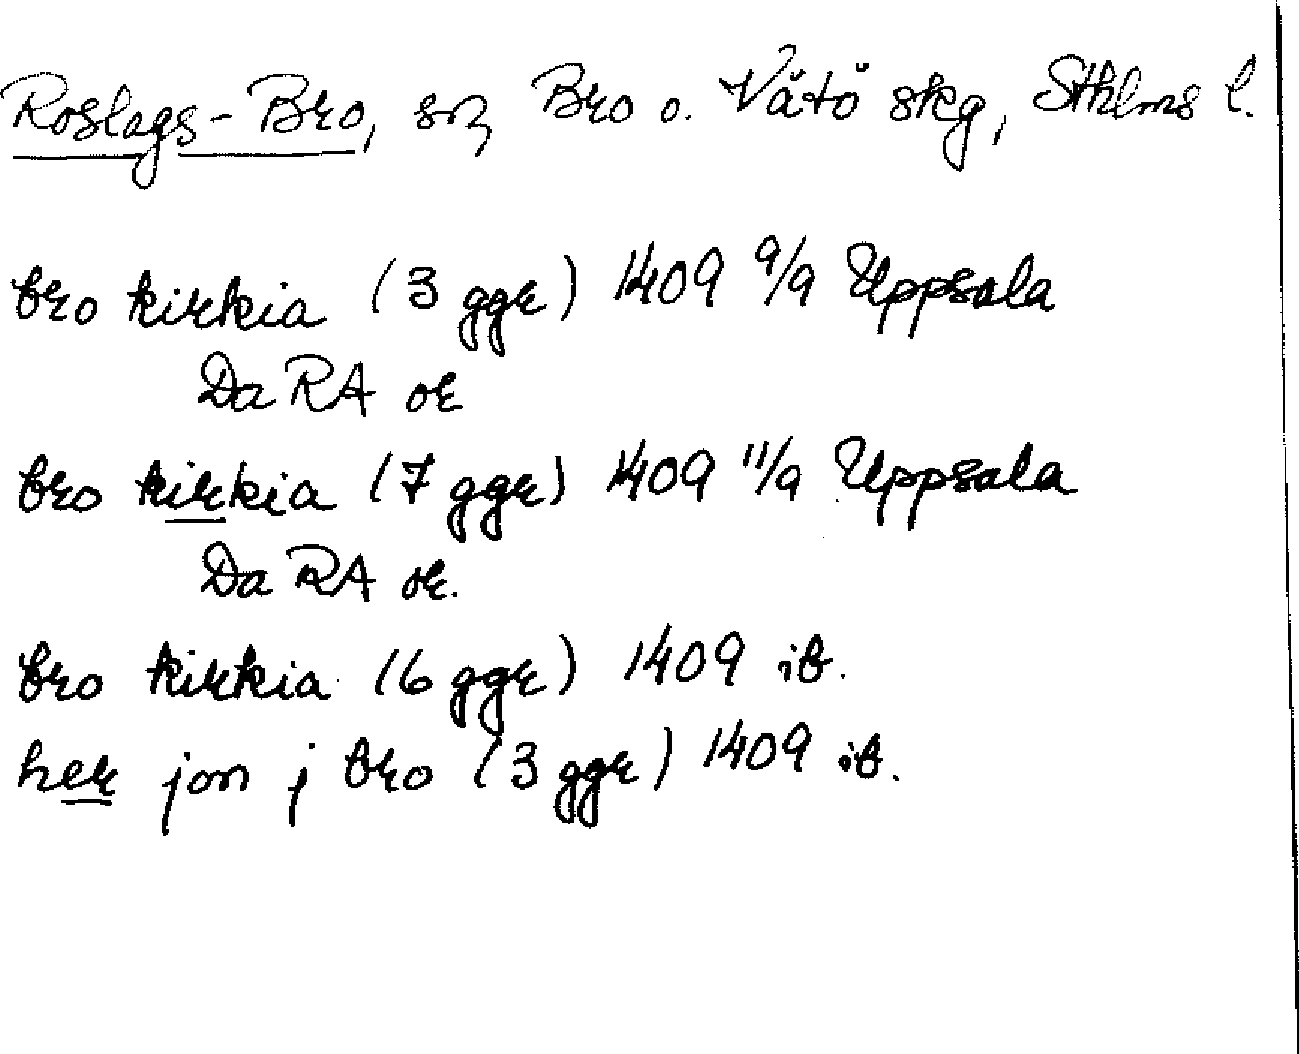 Roslags-Bro, sn, Bro o. Vätö skg, Sthlms l.
bro kirkia (3 ggr) 1409 9/9 Uppsala
Da RA or
bro kirkia (7 ggr) 1409 11/9 Uppsala
Da RA or.
bro kirkia (6 ggr) 1409 ib.
her jon j bro (3 ggr) 1409 ib.